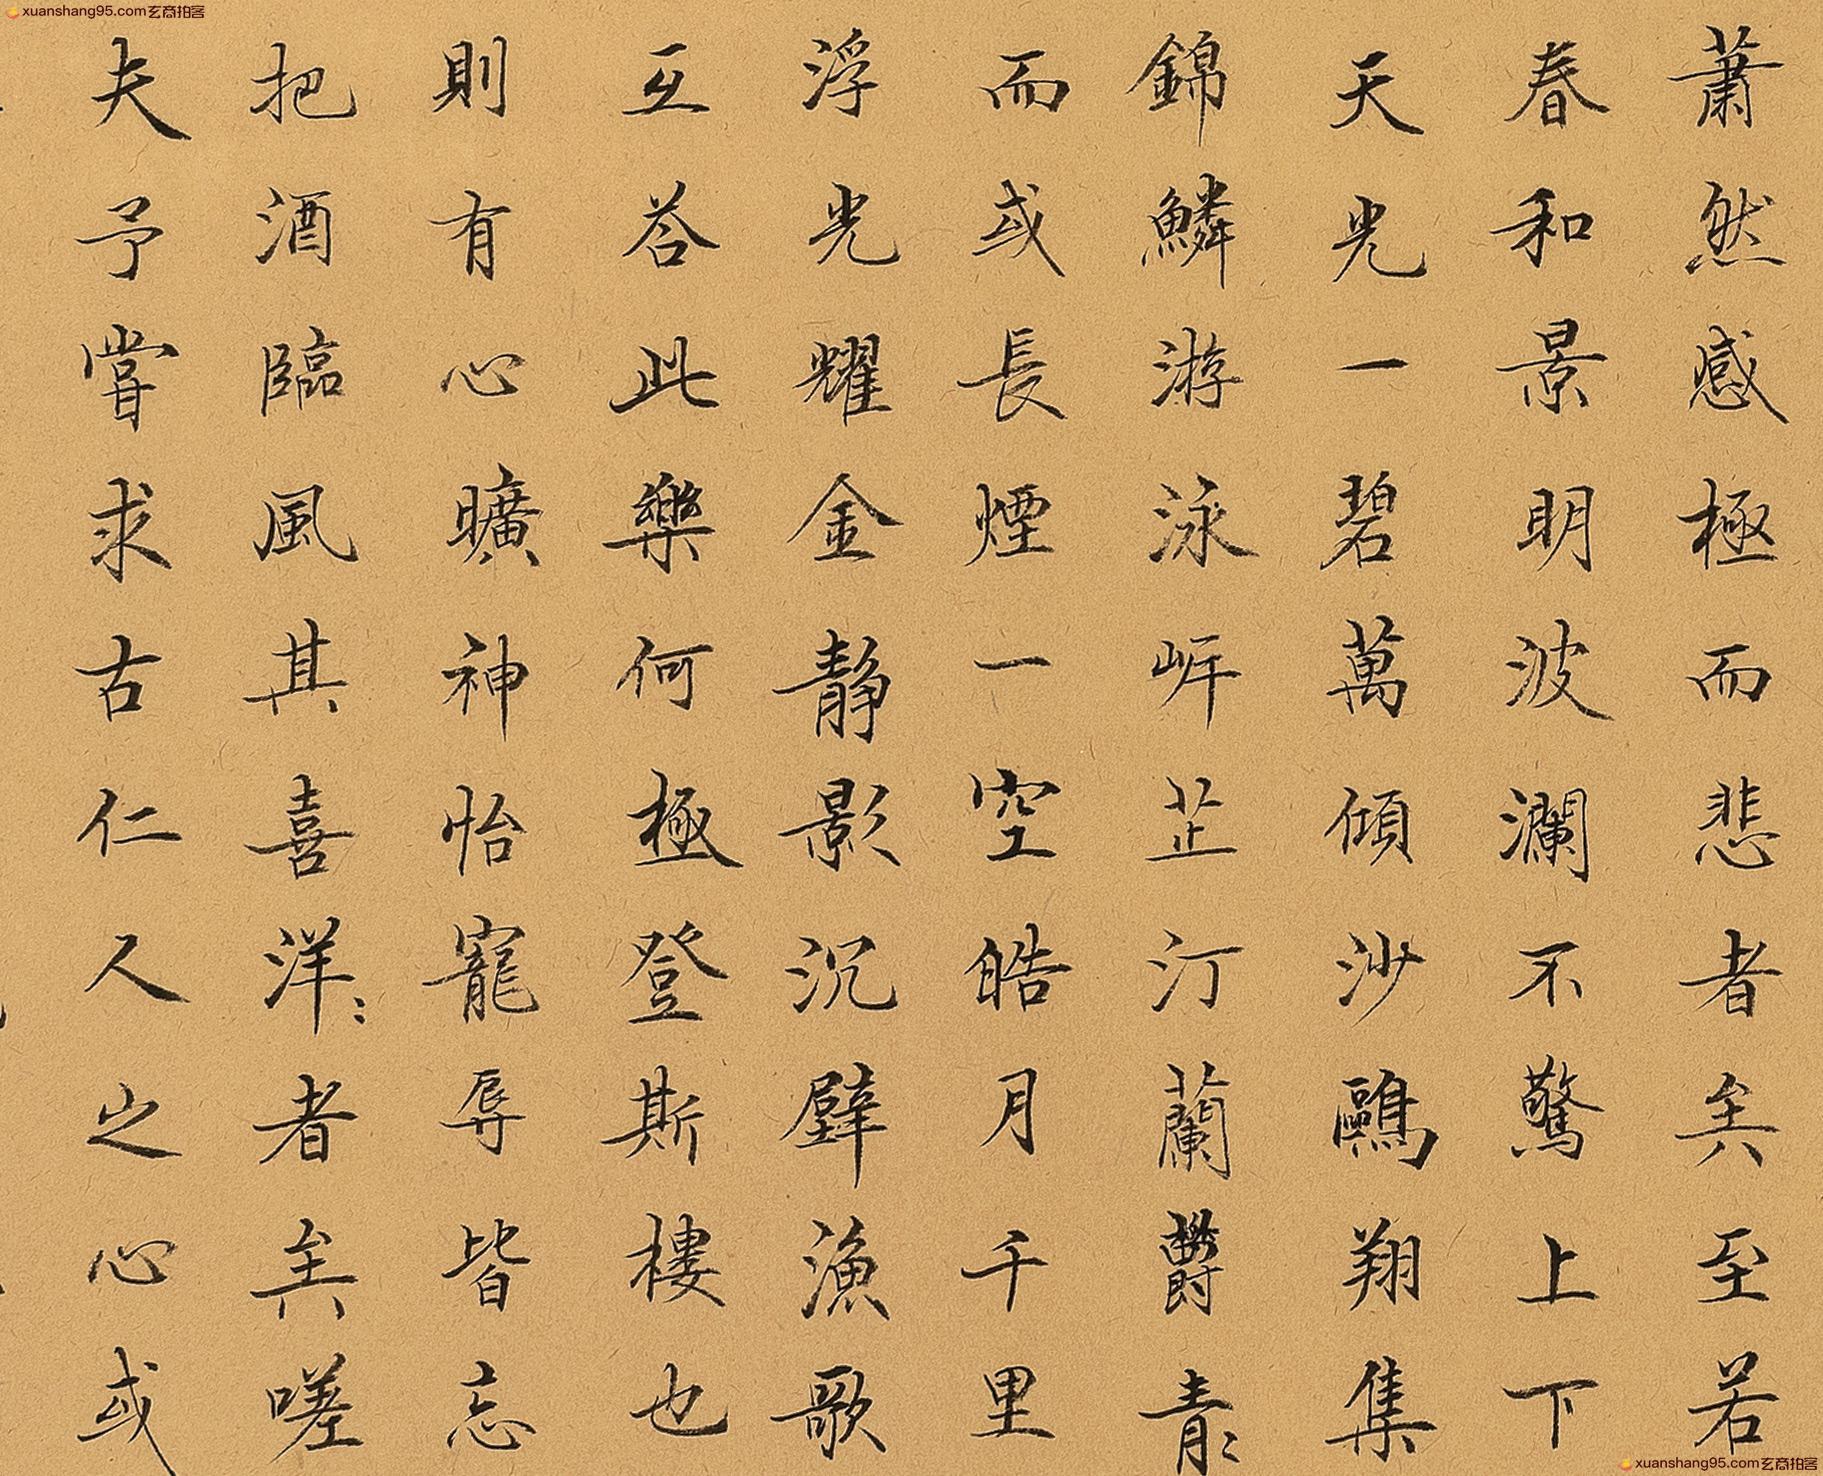 xuanshang95.com玄商拍客
蕭然感極而悲者矣至若
春和景明波瀾不驚上下
天光一碧萬傾沙鷗翔集
錦鱗游泳岸芷汀蘭欝青〻
而或長煙一空皓月千里
浮光耀金静影沉璧漁歌
互荅此樂何極登斯樓也
則有心曠神怡寵辱皆忘
把酒臨風其喜洋〻者矣嗟
夫予嘗求古仁人之心或
xuanshang95.com玄商拍客